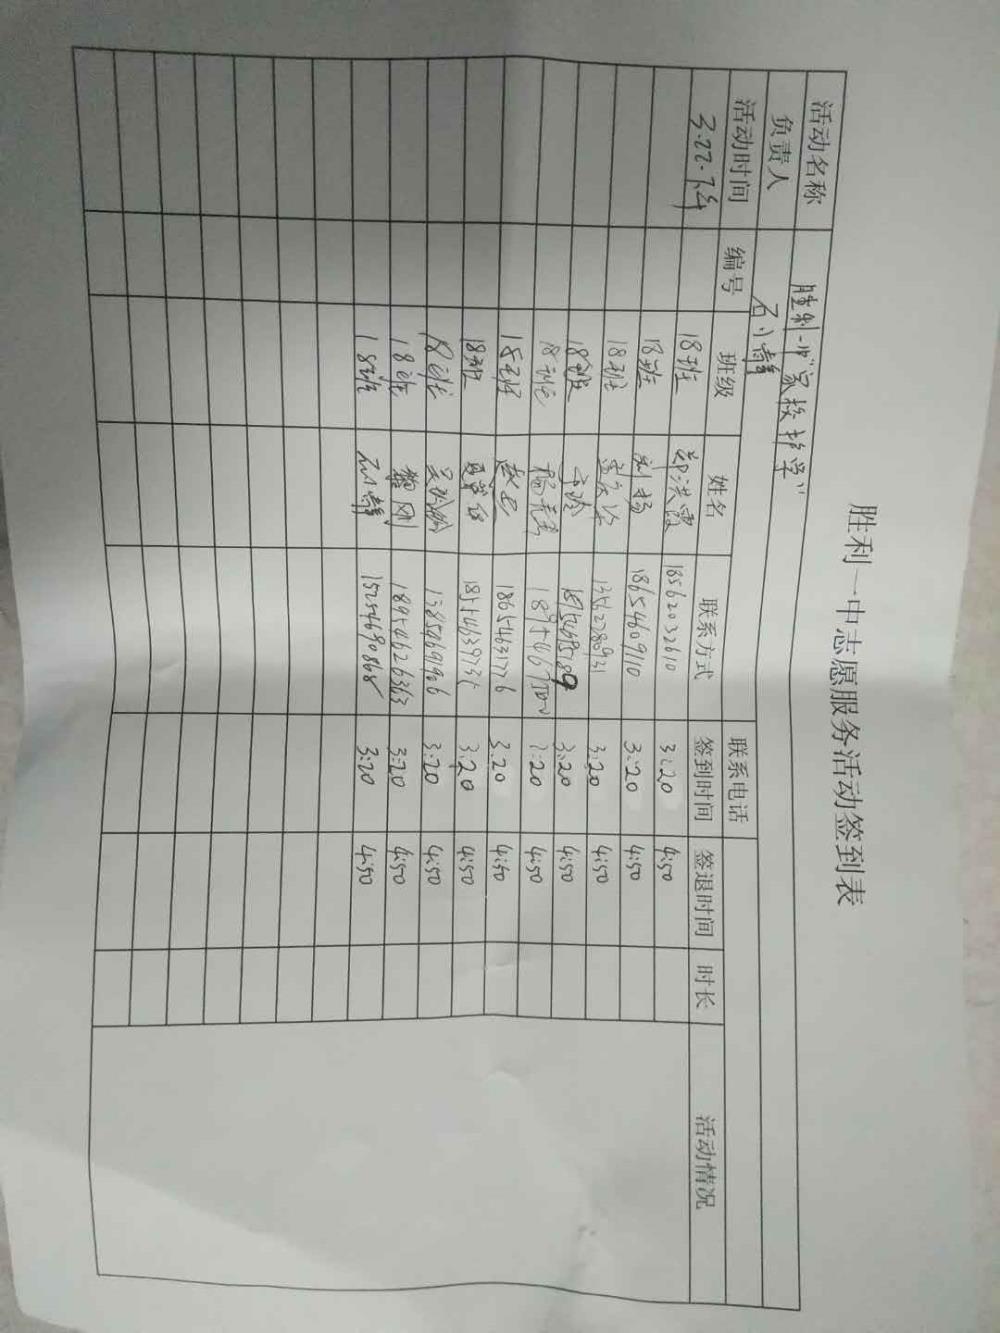 胜利一中志愿服务活动签到表
活动名称 胜利一中"家校护学"
负责人 石小静 联系电话
活动时间 编号 班级 姓名 联系方式 签到时间 签退时间 时长 活动情况
3.22.下午 18班 郭洪霞 18562032610 3:20 4:50
18班 刘杨 18654609110 3:20 4:50
18班 13562780931 3:20 4:50
18班 3:20 4:50
18班 3:20 4:50
18班 18654631776 3:20 4:50
18班 3:20 4:50
18班 3:20 4:50
18班 黎刚 18954626363 3:20 4:50
18班 石小静 15254690868 3:20 4:50